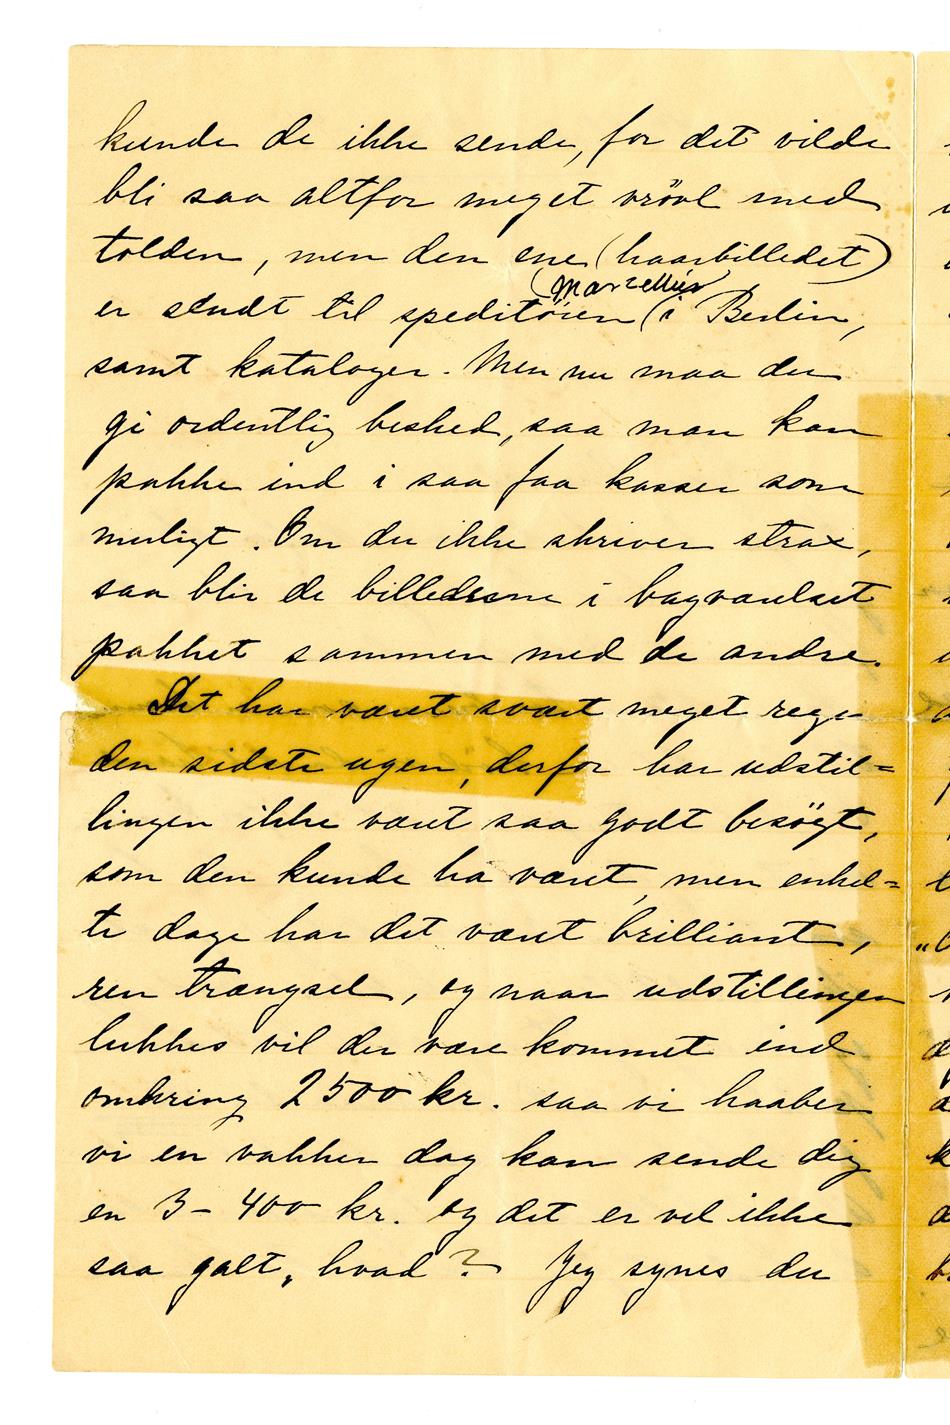 kunde de ikke sende, for det vilde
bli saa altfor meget vrövl med
tolden, men den ene (haarbilledet)
(Marzellus
er sendt til speditören (i Berlin,
samt kataloger. Men nu maa du
gi ordentlig beshed, saa man kan
pakke ind i saa faa kasser som
muligt. Om du ikke skriver strax,
saa blir de billederne i bagværelset
pakket sammen med de andre.
Det har været svært meget regn
den sidste ugen, derfor har udstil=
lingen ikke været saa godt besögt,
som den kunde ha været, men enkel=
te dage har det været brilliant,
ren trængsel, og naar udstillingen
lukkes vil der være kommet ind
omkring 2500 kr. saa vi haaber
vi en vakker dag kan sende dig
en 3-400 kr. og det er vel ikke
saa galt, hvad? Jeg synes du